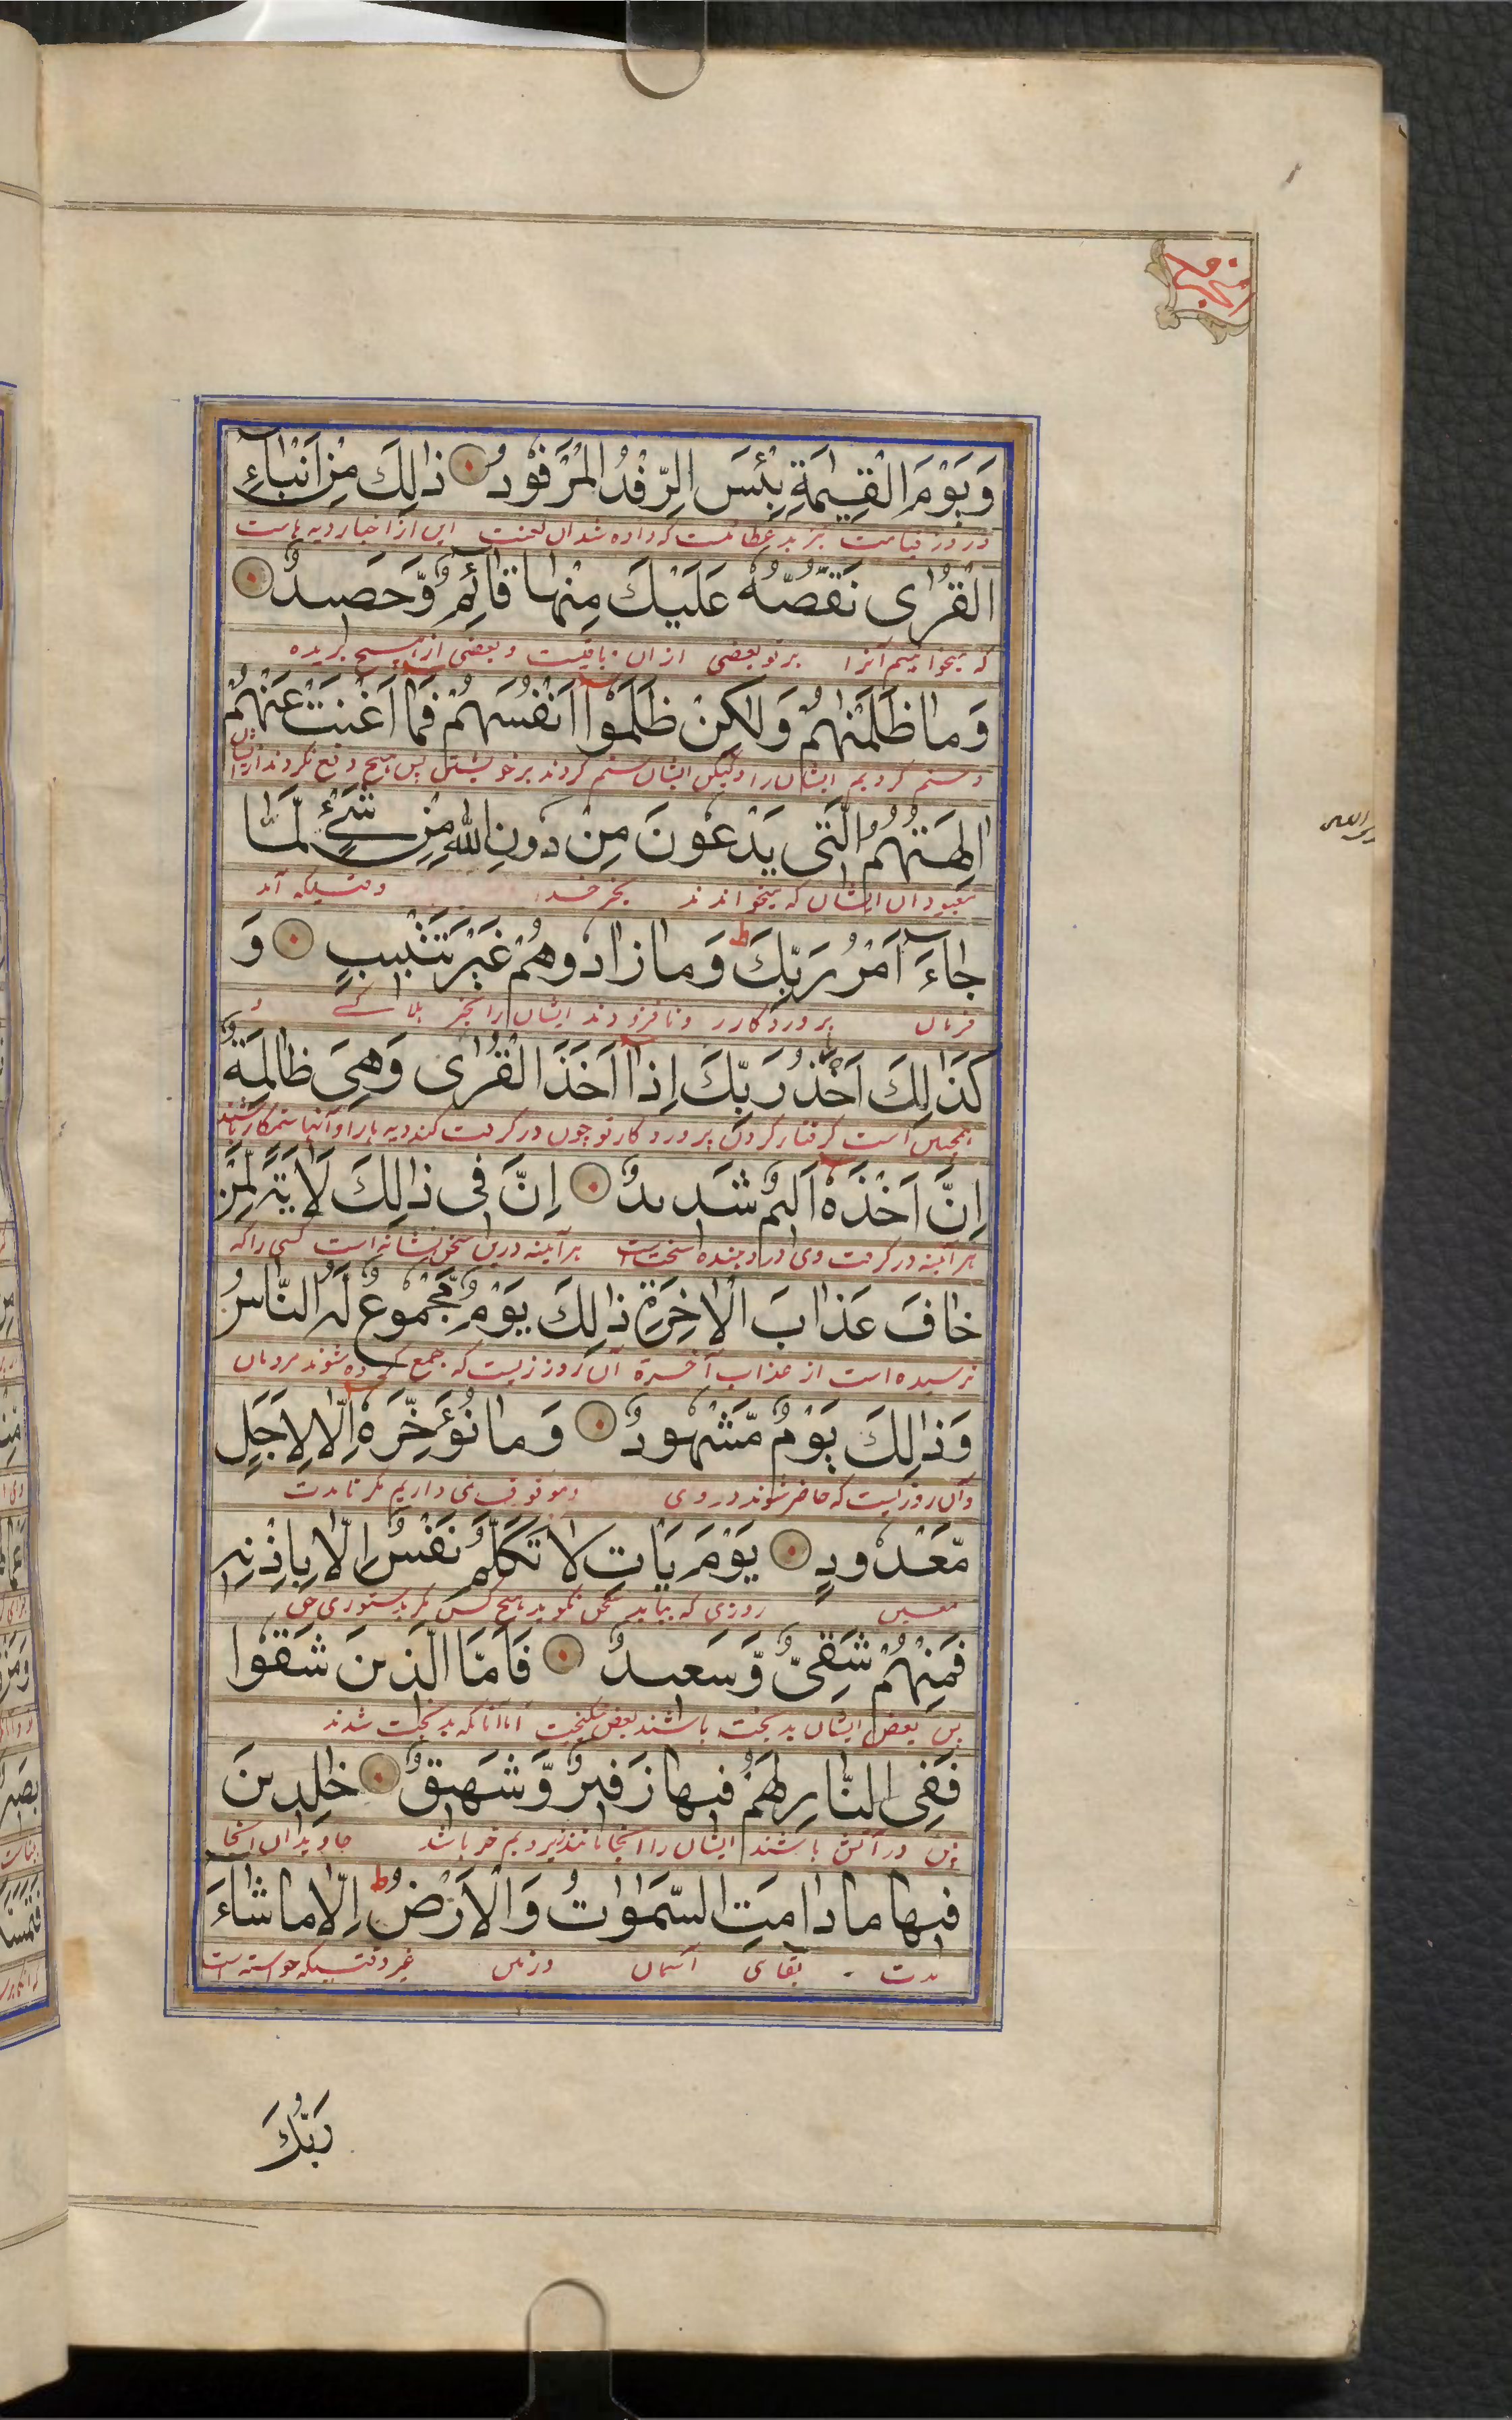 وَيَوْمَ الْقِيٰمَةِ بِئْسَ الرِّفْدُ الْمَرْفُوْدُ ذٰلِكَ مِنْ اَنْبَآءِ
در روز قیامت این از اخبار دیه هاست
الْقُرٰى نَقُصُّهٗ عَلَيْكَ مِنْهَا قَآئِمٌ وَّحَصِيْدٌ
که میخوانیم آنرا بر تو بعضی ازان باقیست و بعضی از بریده
وَمَا ظَلَمْنٰهُمْ وَلٰكِنْ ظَلَمُوْا اَنْفُسَهُمْ فَمَا اَغْنَتْ عَنْهُمْ
و ستم کردیم ایشان را ولیکن ایشان ستم کردند بر خویشتن پس هیچ دفع نکردند ازیشان
اٰلِهَتُهُمُ الَّتِى يَدْعُوْنَ مِنْ دُوْنِ اللّٰهِ مِنْ شَىْءٍ لَّمَّا
معبودان ایشان که میخواندند بجز خدا وقتیکه آمد
جَآءَ اَمْرُ رَبِّكَ ط وَمَا زَادُوْهُمْ غَيْرَ تَتْبِيْبٍ وَ
فرمان پروردگار و نافزودند ایشان را بجز هلاکے و
كَذٰلِكَ اَخْذُ رَبِّكَ اِذَا اَخَذَ الْقُرٰى وَهِىَ ظَالِمَةٌ
همچنین است گرفتار کردن پروردگار تو چون در گرفت کند دیه ها را و آنها ستمکار باشند
اِنَّ اَخْذَهٗ اَلِيْمٌ شَدِيْدٌ اِنَّ فِى ذٰلِكَ لَاٰيَةً لِّمَنْ
هر آئینه در گرفت وی درد دهنده سخت است هر آئینه درین سخن نشانه است کسی را که
خَافَ عَذَابَ الْاٰخِرَةِ ذٰلِكَ يَوْمٌ مَّجْمُوْعٌ لَّهُ النَّاسُ
ترسیده است از عذاب آخرة آن روزیست که جمع کرده شوند مردمان
وَذٰلِكَ يَوْمٌ مَّشْهُوْدٌ وَمَا نُؤَخِّرُهٗ اِلَّا لِاَجَلٍ
و آن روزیست که حاضر شوند در وی و موقوف نمی داریم مگر تا مدت
مَّعْدُوْدٍ يَوْمَ يَاْتِ لَا تَكَلَّمُ نَفْسٌ اِلَّا بِاِذْنِهٖ
معین روزی که بیاید سخن نگوید هیچ کس مگر بدستوری حق
فَمِنْهُمْ شَقِىٌّ وَّسَعِيْدٌ فَاَمَّا الَّذِيْنَ شَقُوْا
پس بعض ایشان بدبخت باشند بعض نیکبخت اما آنانکه بدبخت شدند
فَفِى النَّارِ لَهُمْ فِيْهَا زَفِيْرٌ وَّشَهِيْقٌ خٰلِدِيْنَ
پس در آتش باشند ایشان را آنجا مانند زیر و بم خر باشد جاویدان آنجا
فِيْهَا مَا دَامَتِ السَّمٰوٰتُ وَالْاَرْضُ ط اِلَّا مَا شَآءَ
مدت بقای آسمان و زمین غیر وقتیکه خواسته است
رَبُّكَ